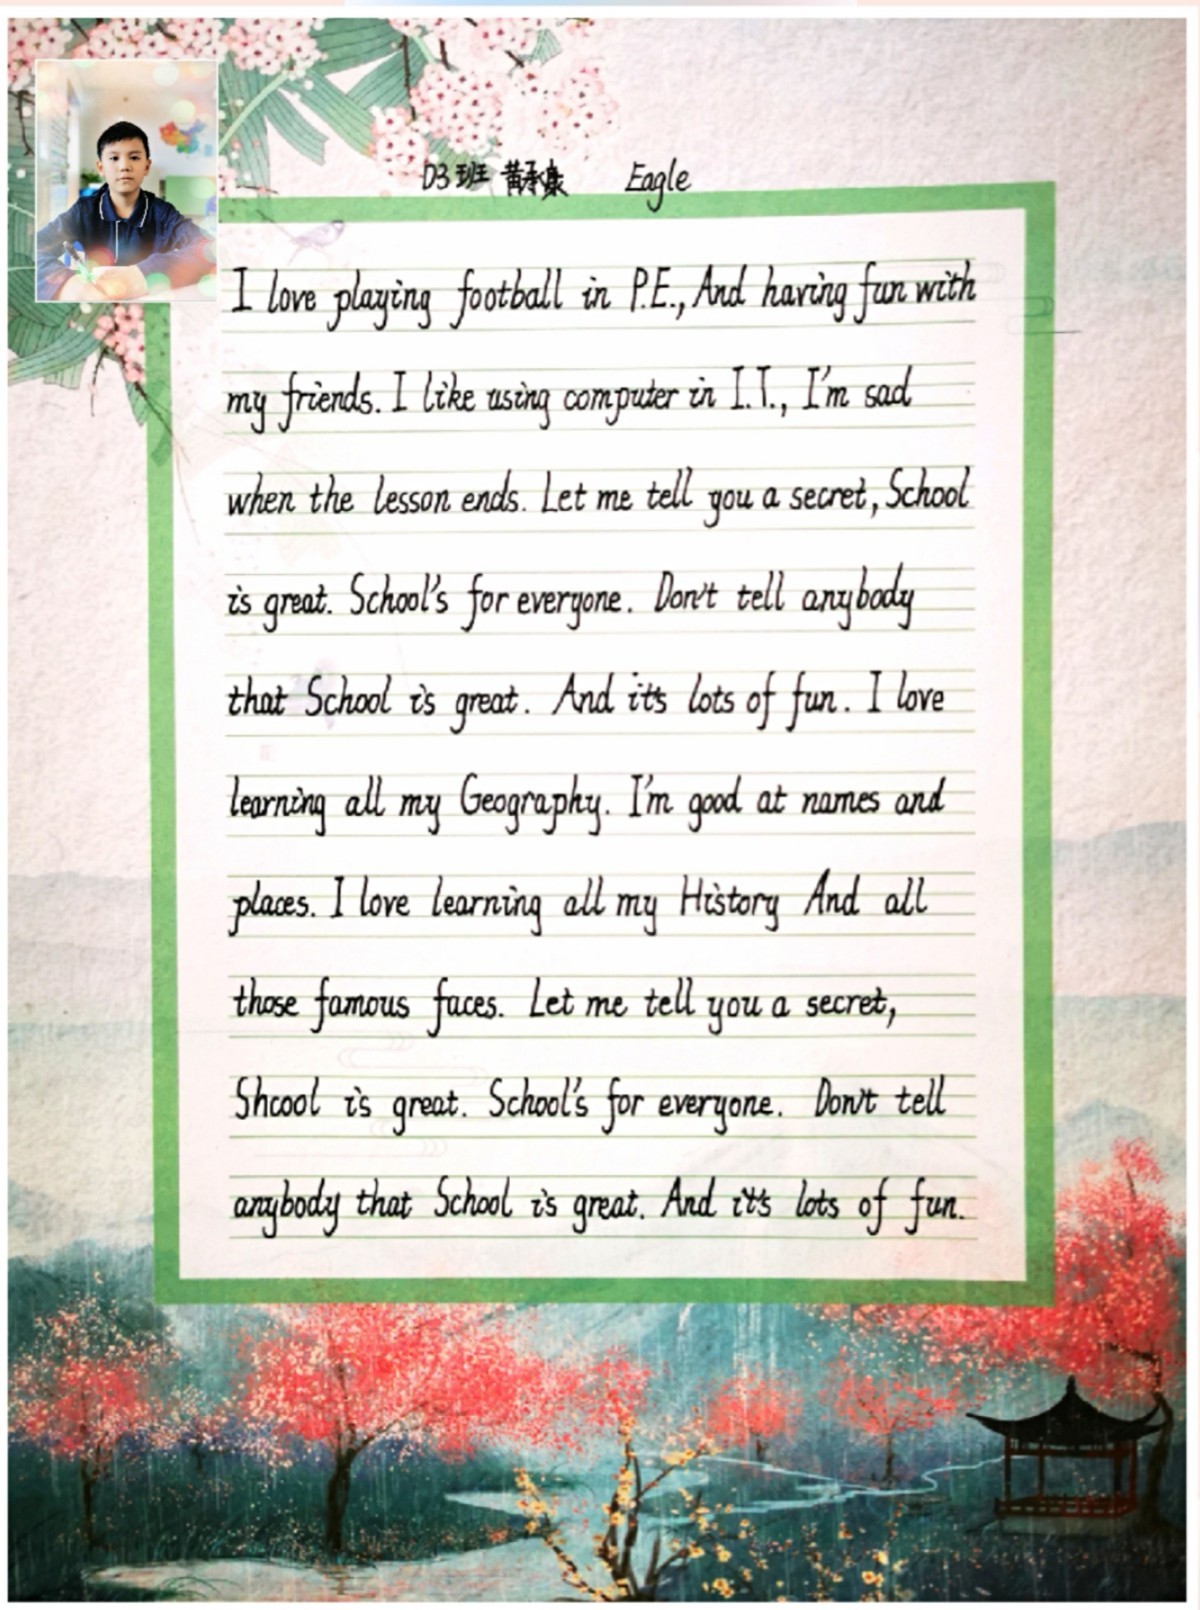 D3班 黄承康 Eagle
I love playing football in P.E., And having fun with
my friends. I like using computer in I.T., I'm sad
when the lesson ends. Let me tell you a secret, School
is great. School's for everyone. Don't tell anybody
that School is great. And it's lots of fun. I love
learning all my Geography. I'm good at names and
places. I love learning all my History And all
those famous faces. Let me tell you a secret,
Shcool is great. School's for everyone. Don't tell
anybody that School is great. And it's lots of fun.